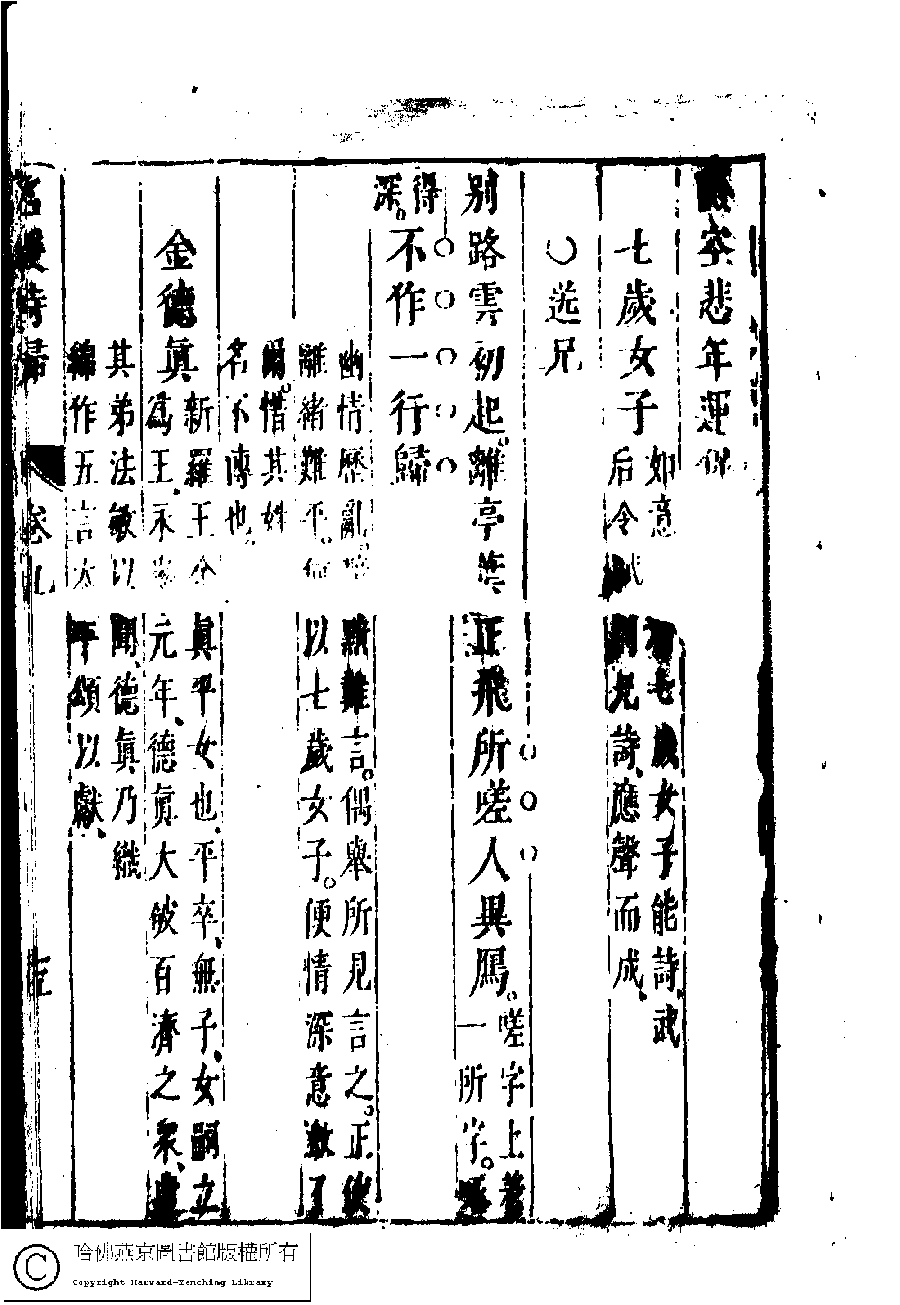 空悲年運
七歲女子
如意有七歲女子能詩、武
后令賦別兄詩、應聲而成、
〇送兄
別路雲初起。離亭葉正飛所嗟人異鴈。
嗟字上着
一所字。
得
深。
不作一行歸
幽情歷亂難言。偶舉所見言之。正使
離緒難平。以七歲女子。便情深意激了
爾。惜其姓
名不傳也、
金德眞
新羅王金眞平女也、平卒、無子、女嗣立
為王、永徽元年、德眞大破百濟之衆、遣
其弟法敏以聞、德眞乃織
綿作五言太平頌以獻、
名媛詩歸
卷九
哈佛燕京圖書館版權所有
Copyright Harvard-Yenching Library